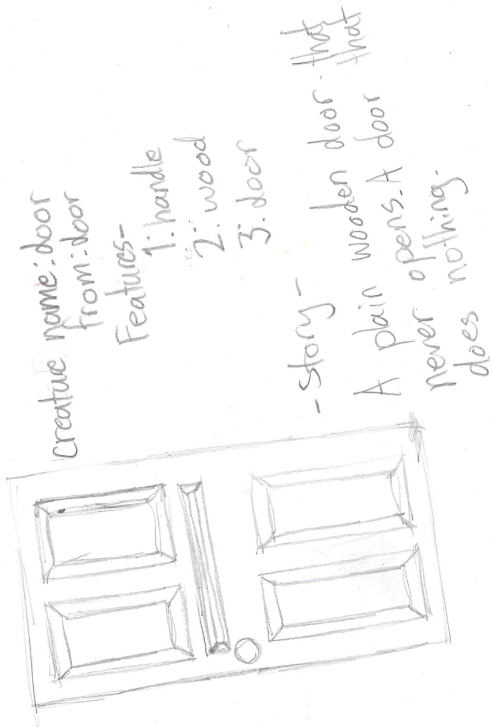 creature name:door
from:door
Features-
1: handle
2: wood
3: door
- Story -
A plain wooden door that
never opens. A door that
does nothing.